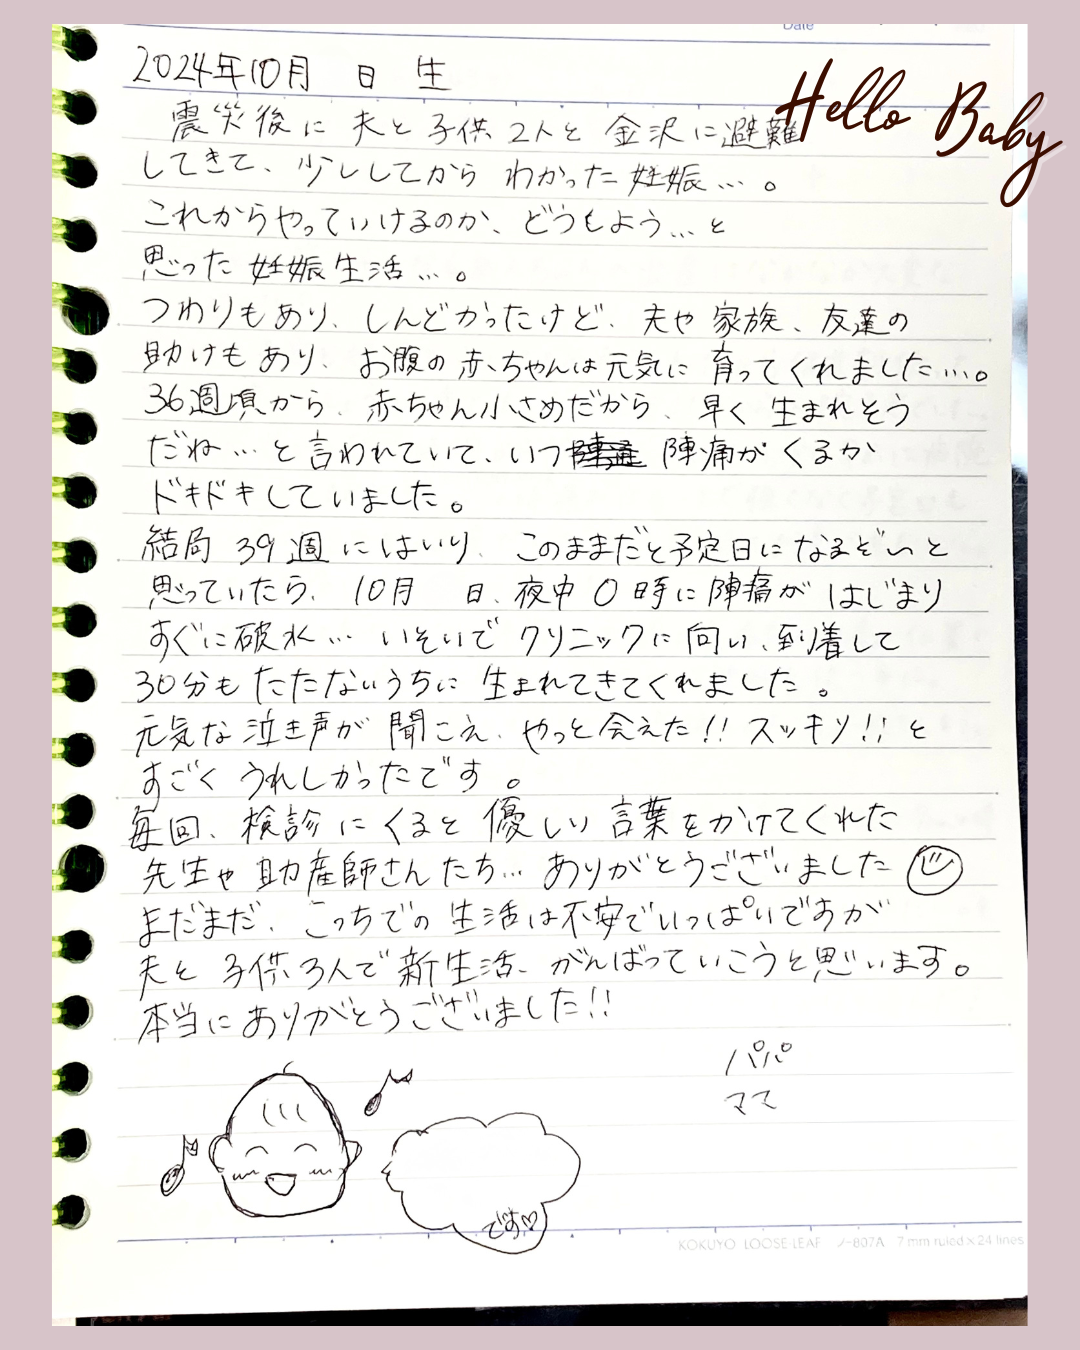 Date
Hello Baby
2024年10月 日 生
震災後に 夫と 子供 2人と 金沢に避難
してきて、少ししてから わかった 妊娠…。
これからやっていけるのか、どうしよう…と
思った 妊娠生活…。
つわりもあり、しんどかったけど、夫や 家族、友達の
助けもあり、お腹の赤ちゃんは元気に 育ってくれました…。
36週頃から、赤ちゃん小さめだから、早く 生まれそう
だね…と言われていて、いつ 陣痛が くるか
ドキドキしていました。
結局 39週 にはいり、このままだと予定日になるぞいと
思っていたら、10月 日、夜中 0時に陣痛が はじまり
すぐに破水… いそいで クリニックに向い、到着して
30分も たたないうちに 生まれてきてくれました。
元気な泣き声が 聞こえ、やっと会えた!! スッキリ!! と
すごく うれしかったです。
毎回、検診に くると 優しい 言葉をかけてくれた
先生や 助産師さんたち… ありがとうございました
まだまだ、こっちでの 生活は不安でいっぱいですが
夫と 子供 3人で新生活、がんばっていこうと思います。
本当に ありがとうございました!!
パパ
ママ
です♡
KOKUYO LOOSE-LEAF ノ-807A 7 mm ruled × 24 lines